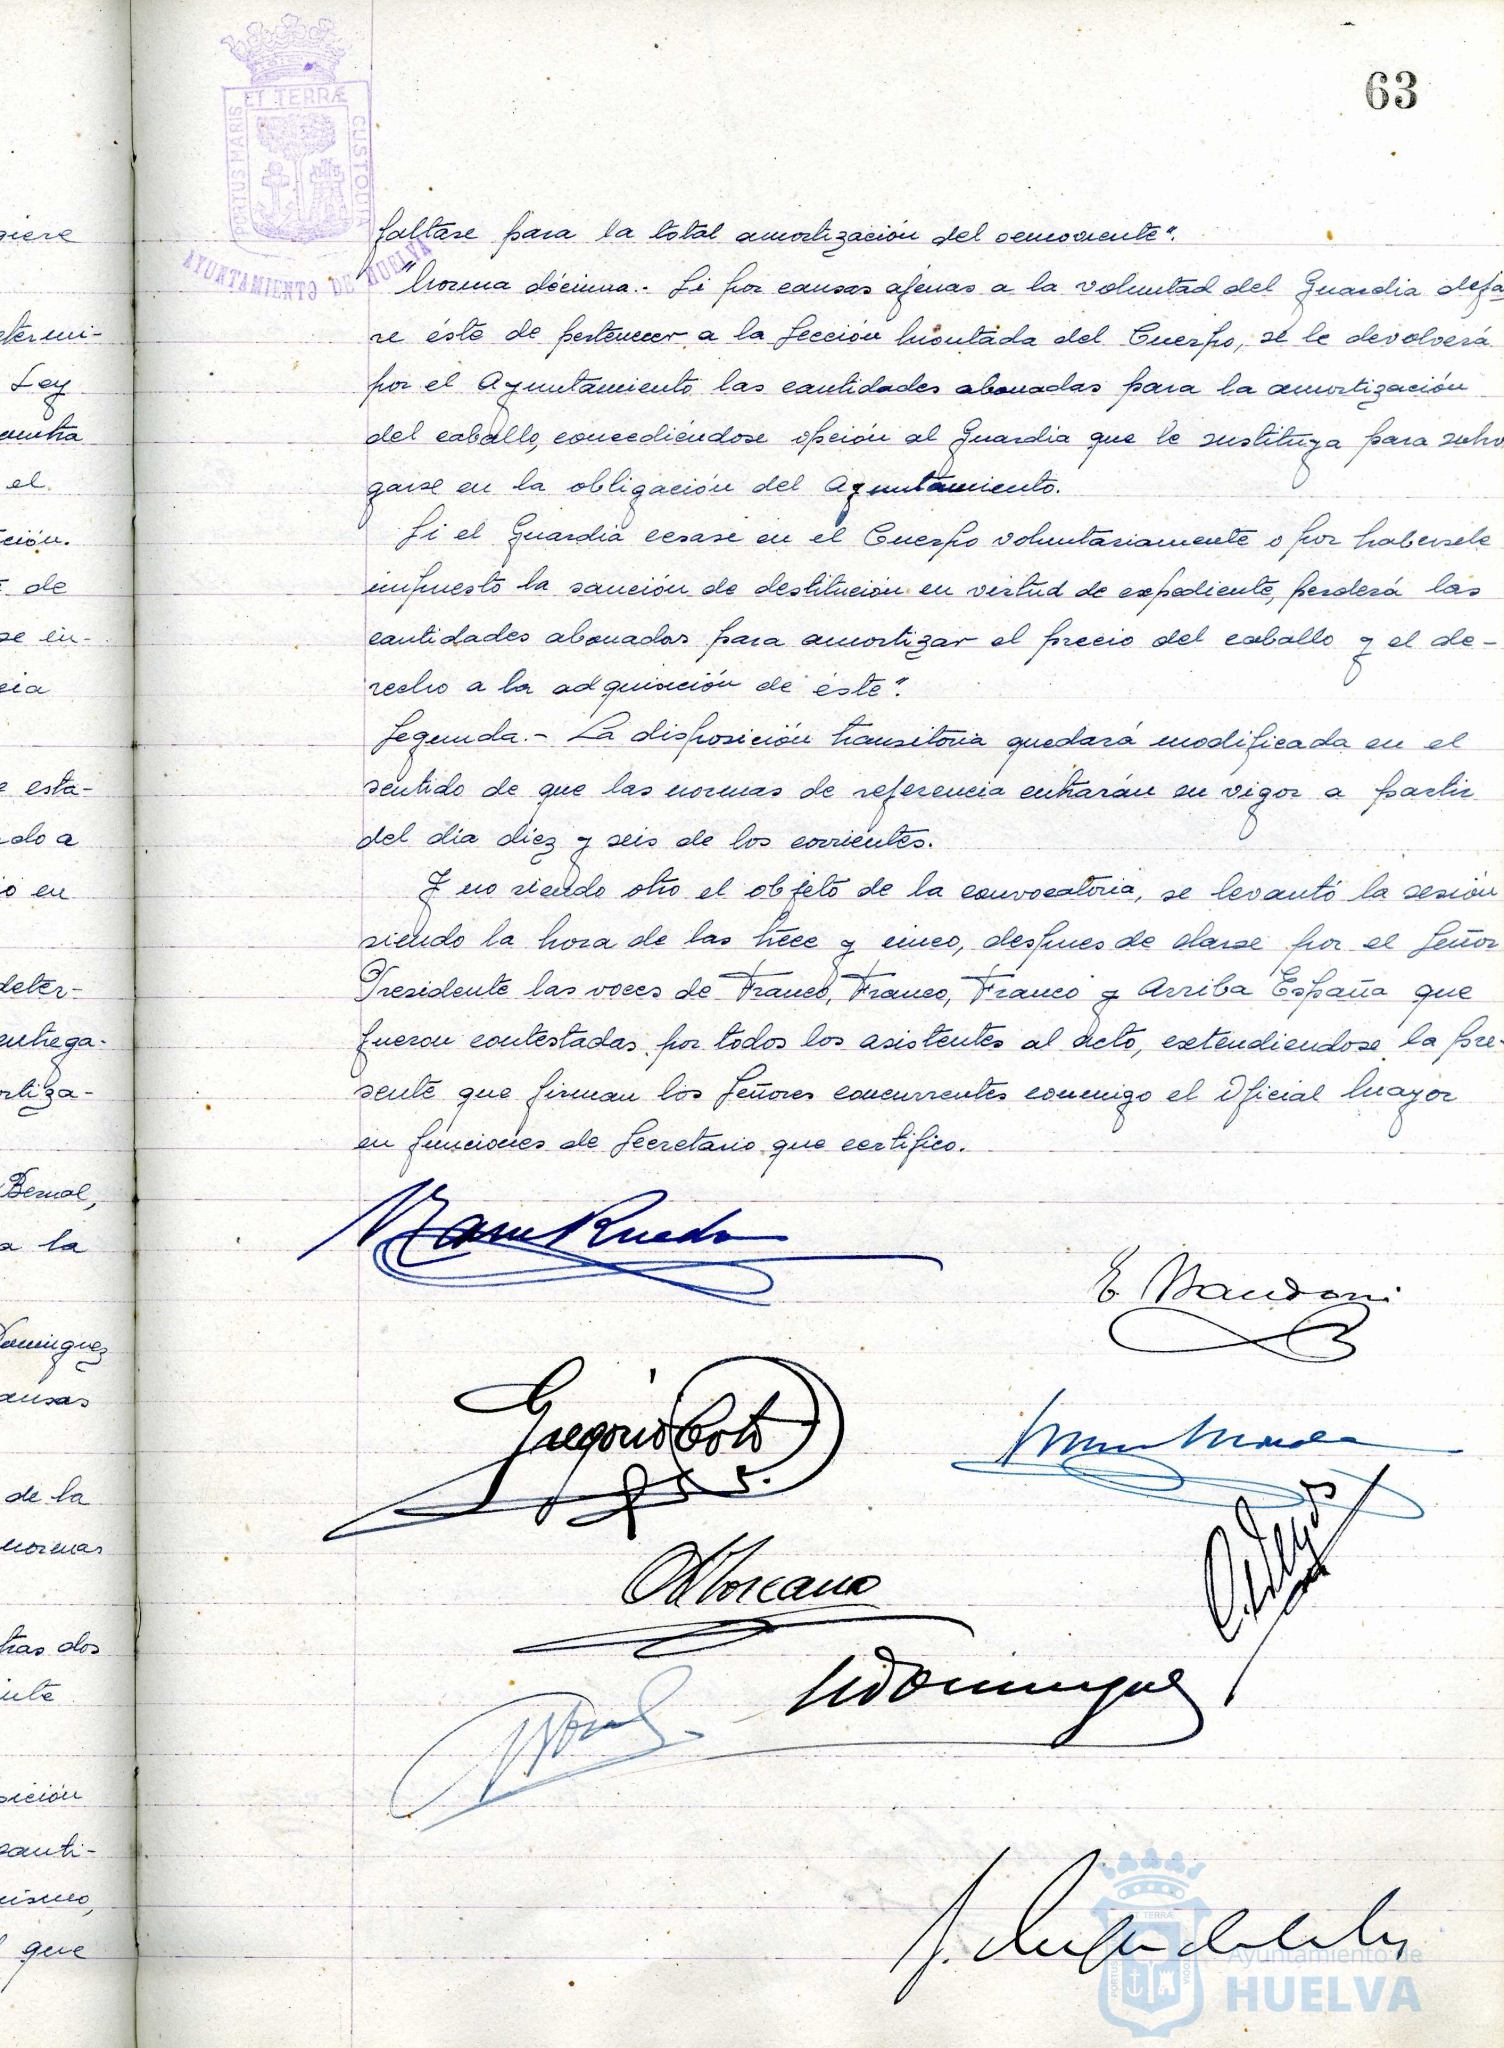 63
PORTUS MARIS ET TERRÆ CUSTODIA
AYUNTAMIENTO DE HUELVA
faltase para la total amortización del semoviente".
"Norma décima.- Si por causas ajenas a la voluntad del Guardia deja-
re éste de pertenecer a la Sección Montada del Cuerpo, se le devolverá
por el Ayuntamiento las cantidades abonadas para la amortización
del caballo, concediéndose opción al Guardia que le sustituya para subro
garse en la obligación del Ayuntamiento.
Si el Guardia cesase en el Cuerpo voluntariamente o por habersele
impuesto la sanción de destitución en virtud de expediente, perderá las
cantidades abonadas para amortizar el precio del caballo y el de-
recho a la adquisición de éste".
Segunda.- La disposición transitoria quedará modificada en el
sentido de que las normas de referencia entrarán en vigor a partir
del dia diez y seis de los corrientes.
Y no siendo otro el objeto de la convocatoria, se levantó la sesión
siendo la hora de las trece y cinco, despues de darse por el Señor
Presidente las voces de Franco, Franco, Franco y Arriba España que
fueron contestadas por todos los asistentes al acto, extendiendose la pre-
sente que firman los Señores concurrentes conmigo el Oficial Mayor
en funciones de Secretario que certifico.
Gregorio Coto
giere
termi-
Ley
el
ción.
de
se en-
cia
esta-
do a
en
deter-
entrega-
ortiza-
Bernal,
a la
Dominguez
causas
de la
normas
tras dos
sición
canti-
mismo,
que
Ayuntamiento de
HUELVA